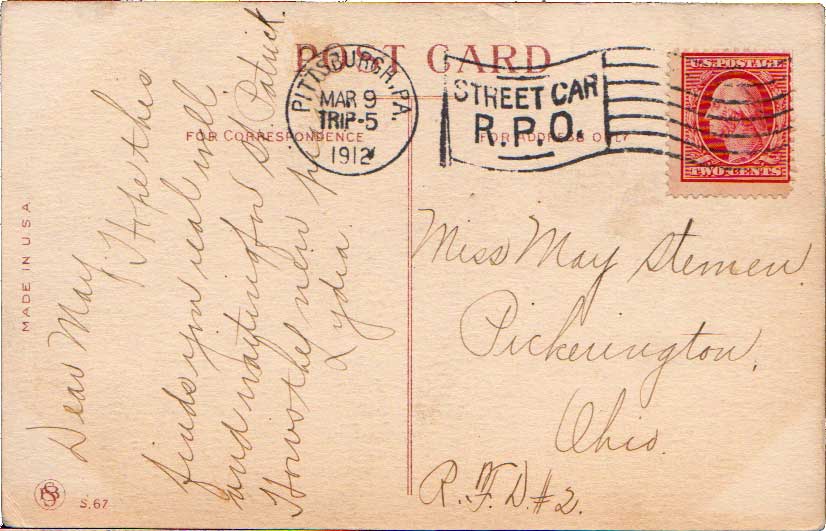 POST CARD
PITTSBURGH, PA.
MAR 9
TRIP-5
1912
STREET CAR
R.P.O.
U.S. POSTAGE
TWO CENTS
FOR CORRESPONDENCE
FOR ADDRESS ONLY
MADE IN U.S.A.
Dear May
Hope this
finds you real well
and waiting for St. Patrick
How's the new
Lydia.
Miss May Stemen
Pickerington,
Ohio.
R.F.D. #2.
S.67